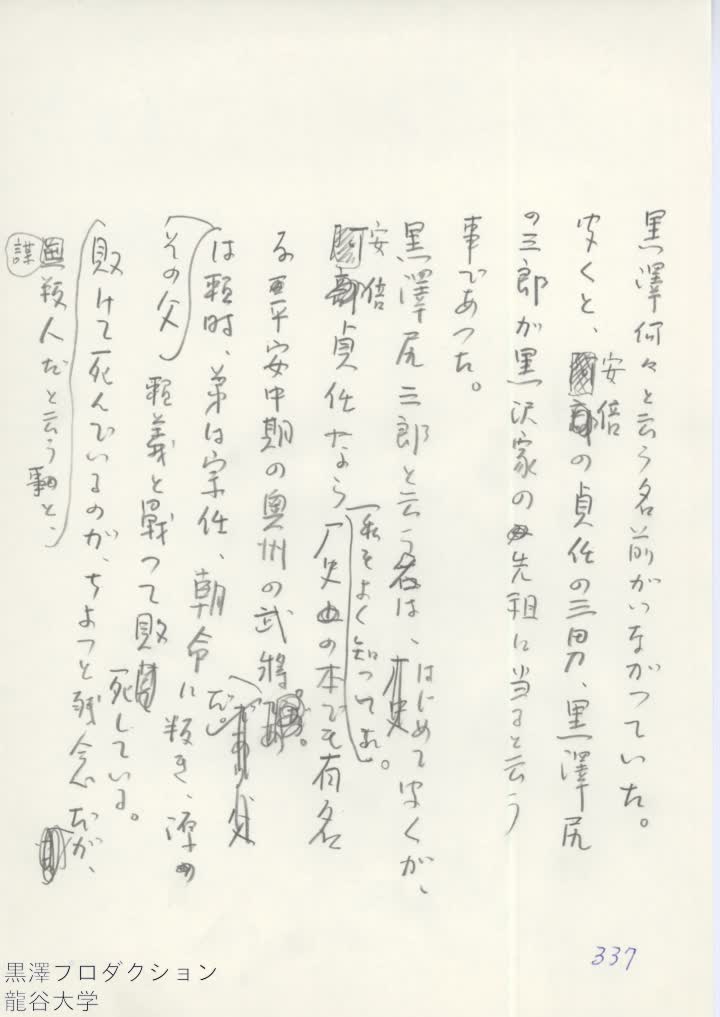 黒澤何々と云う名前がいながつていた。
安倍
聞くと、の貞任の三男、黒澤尻
の三郎が黒沢家の先祖に当ると云う
事であつた。
黒澤尻三郎と云う名は、はじめて聞くが、
安倍
貞任なら
私もよく知つてお
歴史の本でも有名
な平安中期の奥州の武將
だ。
は頼時、弟は宗任、朝命に叛き、源
その父
頼義と戰つて敗死している。
敗けて死んでいるのが、ちよつと残念だが、
謀
叛人だと云う事と、
337
黒澤プロダクション
龍谷大学